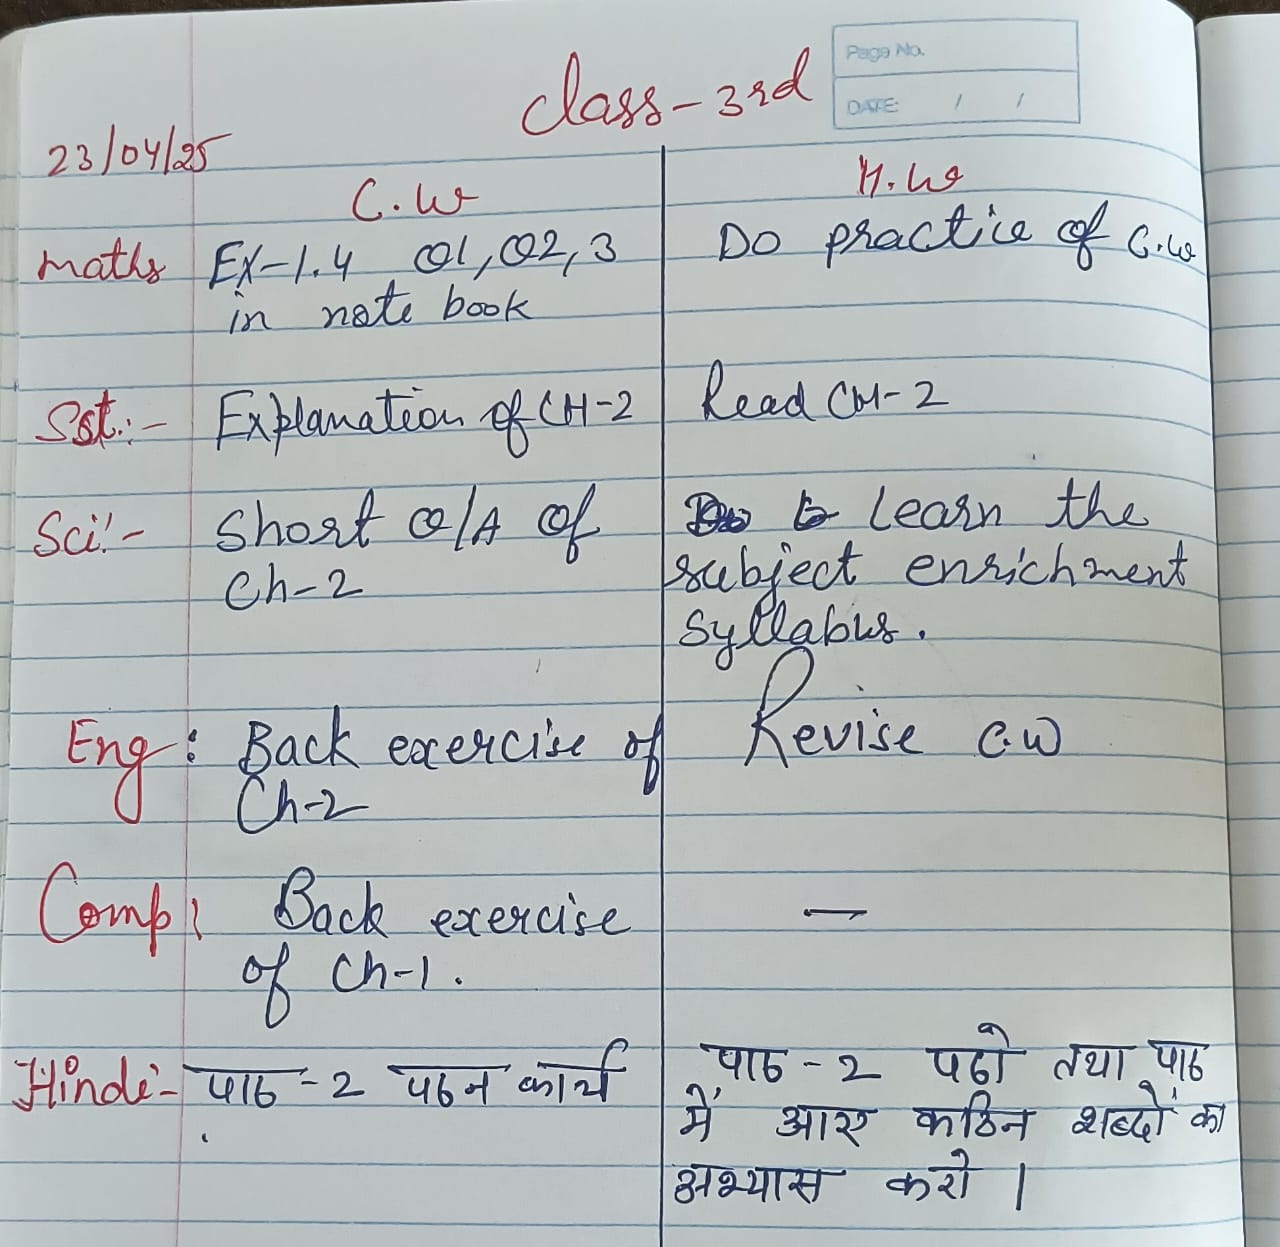 Page No.
class-3rd
DATE: / /
23/04/25
C.W H.W
Maths Ex-1.4 Q1, Q2, 3 Do practice of C.W
in note book
Sst:- Explanation of CH-2 Read CH-2
Sci:- Short Q/A of Learn the
Ch-2 subject enrichment
syllabus.
Eng: Back exercise of Revise C.W
Ch-2
Comp: Back exercise —
of Ch-1.
Hindi:- पाठ-2 पठन कार्य पाठ-2 पढो तथा पाठ
में आए कठिन शब्दों का
अभ्यास करो।